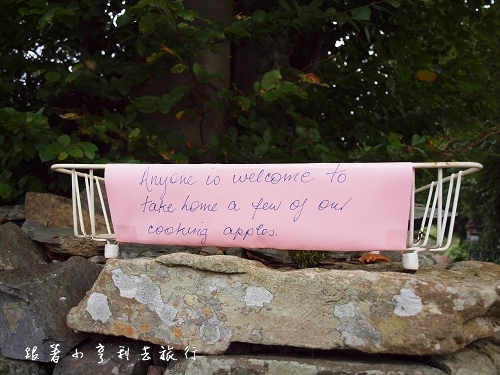 Anyone is welcome to
take home a few of our
cooking apples.
跟著小亨利去旅行